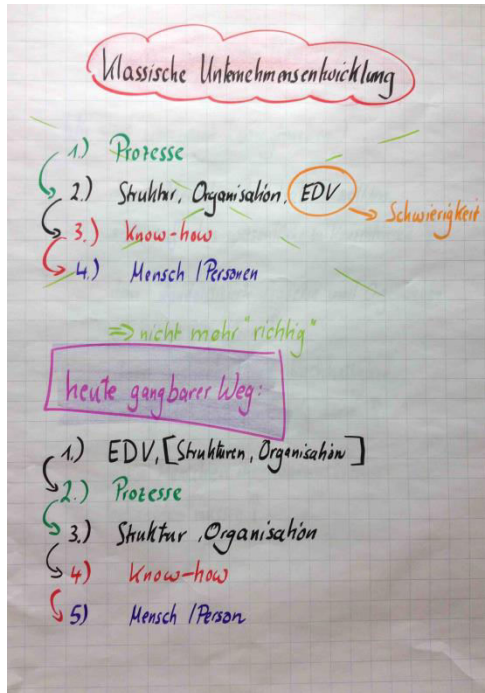 Klassische Unternehmensentwicklung
1.) Prozesse
2.) Struktur, Organisation, EDV
→ Schwierigkeit
3.) Know-how
4.) Mensch / Personen
=> nicht mehr "richtig"
heute gangbarer Weg:
1.) EDV, [Strukturen, Organisation]
2.) Prozesse
3.) Struktur, Organisation
4) Know-how
5) Mensch / Person